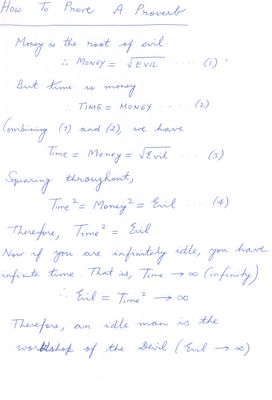 How To Prove A Proverb
Money is the root of evil.
∴ MONEY = √EVIL ..... (1)
But time is money.
∴ TIME = MONEY ..... (2)
Combining (1) and (2), we have
Time = Money = √Evil ... (3)
Squaring throughout,
Time² = Money² = Evil .... (4)
Therefore, Time² = Evil
Now if you are infinitely idle, you have
infinite time. That is, Time → ∞ (infinity)
∴ Evil = Time² → ∞
Therefore, an idle man is the
workshop of the Devil (Evil → ∞)